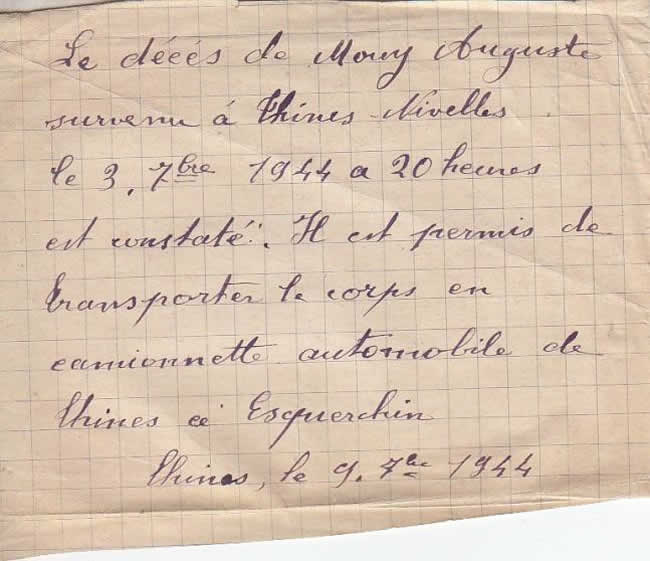 Le décés de Mouy Auguste
survenu à Thines Nivelles
le 3. 7bre 1944 a 20 heures
est constaté. Il est permis de
transporter le corps en
camionnette automobile de
Thines à Esquerchin
Thines, le 9. 7bre 1944